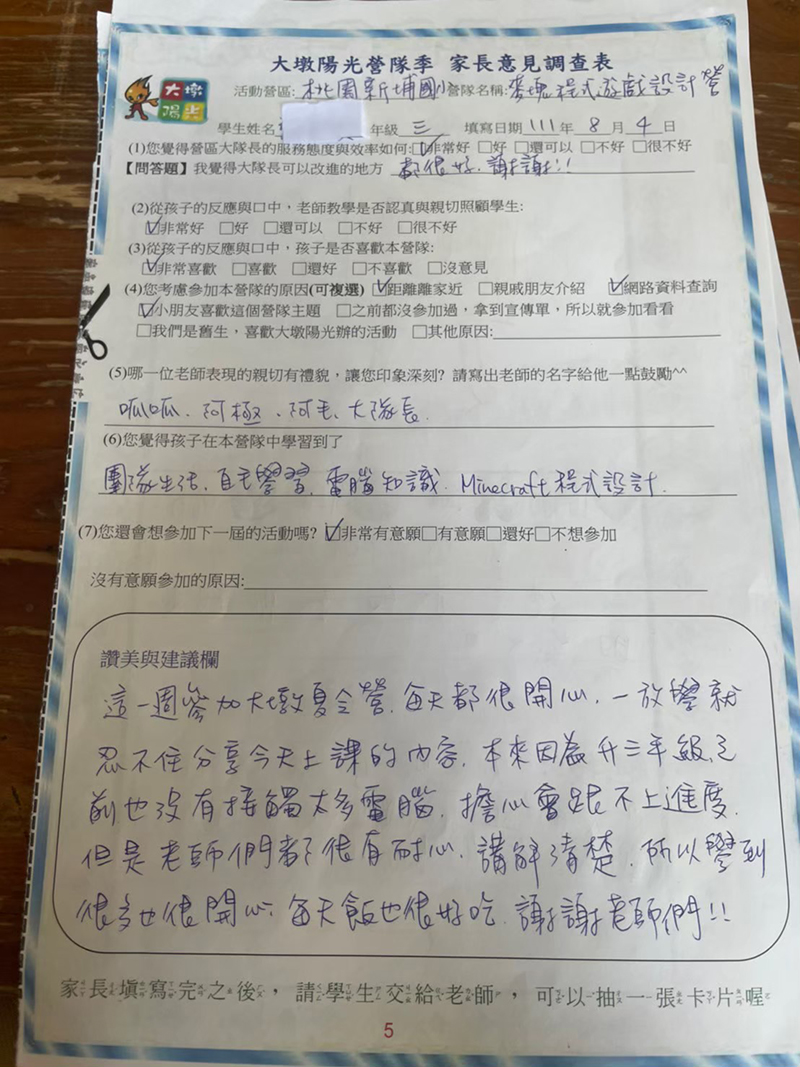 大墩陽光營隊季 家長意見調查表
大墩
陽光
活動營區:桃園新埔國小營隊名稱:麥塊程式遊戲設計營
學生姓名 年級 三 填寫日期 111年 8 月 4 日
(1)您覺得營區大隊長的服務態度與效率如何:☑非常好 □好 □還可以 □不好 □很不好
【問答題】我覺得大隊長可以改進的地方 都很好,謝謝!!
(2)從孩子的反應與口中,老師教學是否認真與親切照顧學生:
☑非常好 □好 □還可以 □不好 □很不好
(3)從孩子的反應與口中,孩子是否喜歡本營隊:
☑非常喜歡 □喜歡 □還好 □不喜歡 □沒意見
(4)您考慮參加本營隊的原因(可複選) ☑距離離家近 □親戚朋友介紹 ☑網路資料查詢
☑小朋友喜歡這個營隊主題 □之前都沒參加過,拿到宣傳單,所以就參加看看
□我們是舊生,喜歡大墩陽光辦的活動 □其他原因:
(5)哪一位老師表現的親切有禮貌,讓您印象深刻? 請寫出老師的名字給他一點鼓勵^^
呱呱、阿極、阿毛、大隊長.
(6)您覺得孩子在本營隊中學習到了
團隊生活、自主學習、電腦知識、Minecraft程式設計.
(7)您還會想參加下一屆的活動嗎? ☑非常有意願□有意願□還好□不想參加
沒有意願參加的原因:
讚美與建議欄
這一週參加大墩夏令營,每天都很開心,一放學就
忍不住分享今天上課的內容,本來因為升三年級,之
前也沒有接觸太多電腦,擔心會跟不上進度,
但是老師們都很有耐心,講解清楚,所以學到
很多也很開心,每天飯也很好吃,謝謝老師們!!
家長填寫完之後,請學生交給老師,可以抽一張卡片喔
5